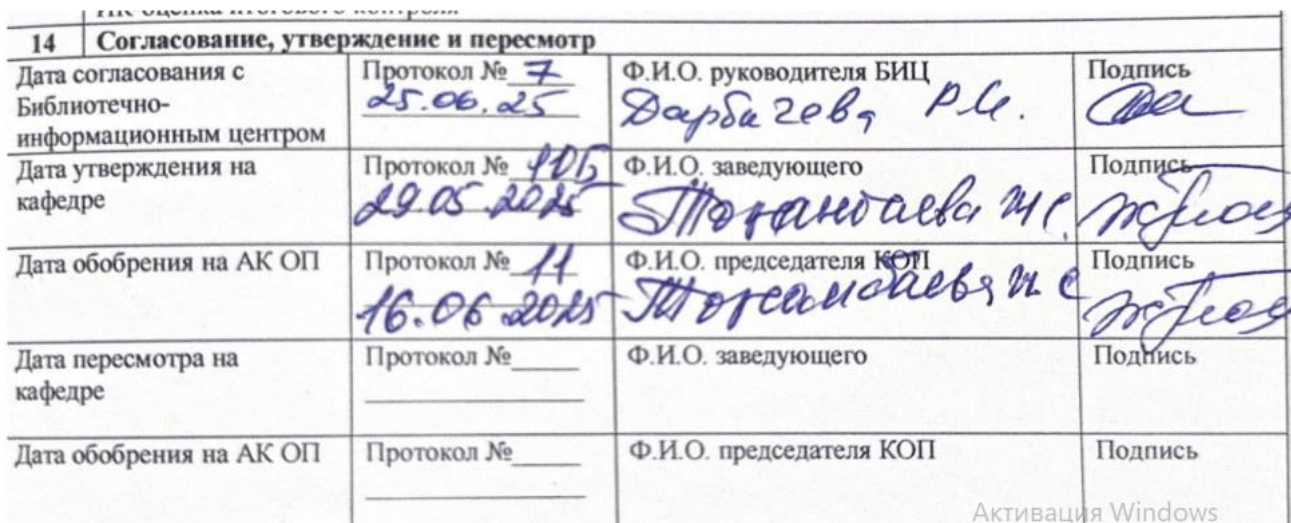 14 Согласование, утверждение и пересмотр
Дата согласования с Библиотечно-информационным центром
Протокол № 7
25.06.25
Ф.И.О. руководителя БИЦ
Р.
Подпись
Дата утверждения на кафедре
Протокол №
29.05.2025
Ф.И.О. заведующего
Подпись
Дата обобрения на АК ОП
Протокол № 11
16.06.2025
Ф.И.О. председателя КОП
Подпись
Дата пересмотра на кафедре
Протокол №
Ф.И.О. заведующего
Подпись
Дата обобрения на АК ОП
Протокол №
Ф.И.О. председателя КОП
Подпись
Активация Windows